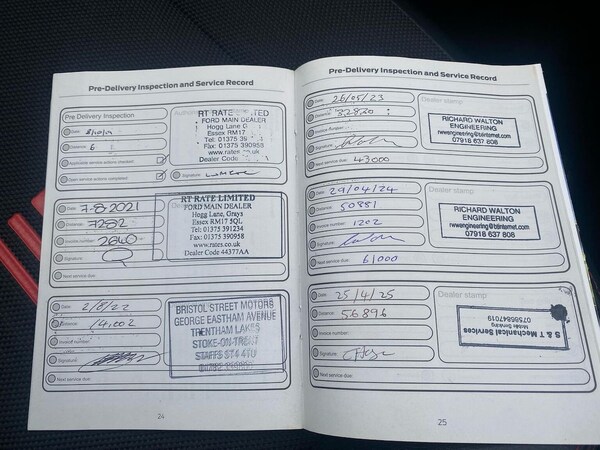 Pre-Delivery Inspection and Service Record
Pre Delivery Inspection
Date:
Distance: 6
Applicable service actions checked:
Open service actions completed:
Signature:
FORD MAIN DEALER
Hogg Lane
Essex RM17
Tel: 01375 39
Fax: 01375 390958
www.rates.
Dealer Code
Date: 7-8-2021
Distance: 7282
Invoice number: 2640
Signature:
Next service due:
RT RATE LIMITED
FORD MAIN DEALER
Hogg Lane, Grays
Essex RM17 5QL
Tel: 01375 391234
Fax: 01375 390958
www.rates.co.uk
Dealer Code 44377AA
Date: 2/8/22
Distance: 14,002
Invoice number:
Signature:
Next service due:
BRISTOL STREET MOTORS
GEORGE EASTHAM AVENUE
TRENTHAM LAKES
STOKE-ON-TRENT
STAFFS ST4 4TU
24
Pre-Delivery Inspection and Service Record
Date: 26/05/23
Distance:
Invoice number:
Signature:
Next service due: 43000
Dealer stamp
RICHARD WALTON
ENGINEERING
rwwengineering@btinternet.com
07918 637 808
Date: 29/04/24
Distance: 50881
Invoice number: 1202
Signature:
Next service due: 61000
Dealer stamp
RICHARD WALTON
ENGINEERING
rwwengineering@btinternet.com
07918 637 808
Date: 25/4/25
Distance: 56896
Invoice number:
Signature:
Next service due:
Dealer stamp
S & T Mechanical Services
07585847019
25